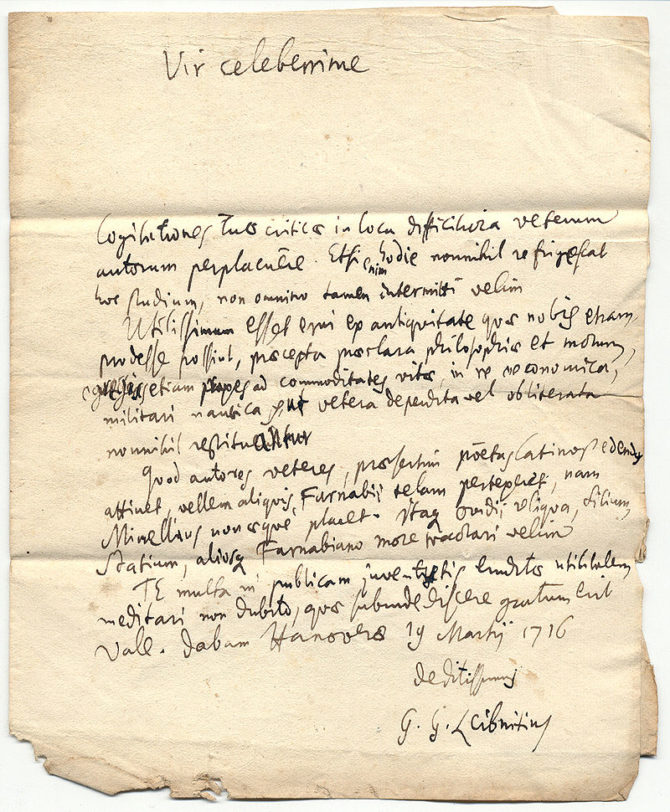 Vir celeberrime
Cogitationes Tuas criticas in loca difficiliora veterum
autorum perplacuere. Etsi enim hodie nonnihil refrigescat
hoc studium, non omnino tamen intermitti velim
Utilissimum esset erui ex antiquitate quae nobis etiam
prodesse possint, praecepta praeclara philosophiae et morum,
egregia etiam ad commoditates vitae, in re oeconomica,
militari nautica, ut vetera deperdita vel obliterata
nonnihil restituantur
Quod autores veteres, praesertim poëtas latinos edendos
attinet, vellem aliquis Farnabii telam pertexeret, nam
Minellius non aeque placet. Itaque Ovidii reliqua, Silium,
Statium, aliosque Farnabiano more tractari velim
TE multa in publicam juventutis eruditae utilitatem
meditari non dubito, quae subinde discere gratum erit
Vale. dabam Hanoverae 19 Martij 1716
deditissimus
G. G. Leibnitius